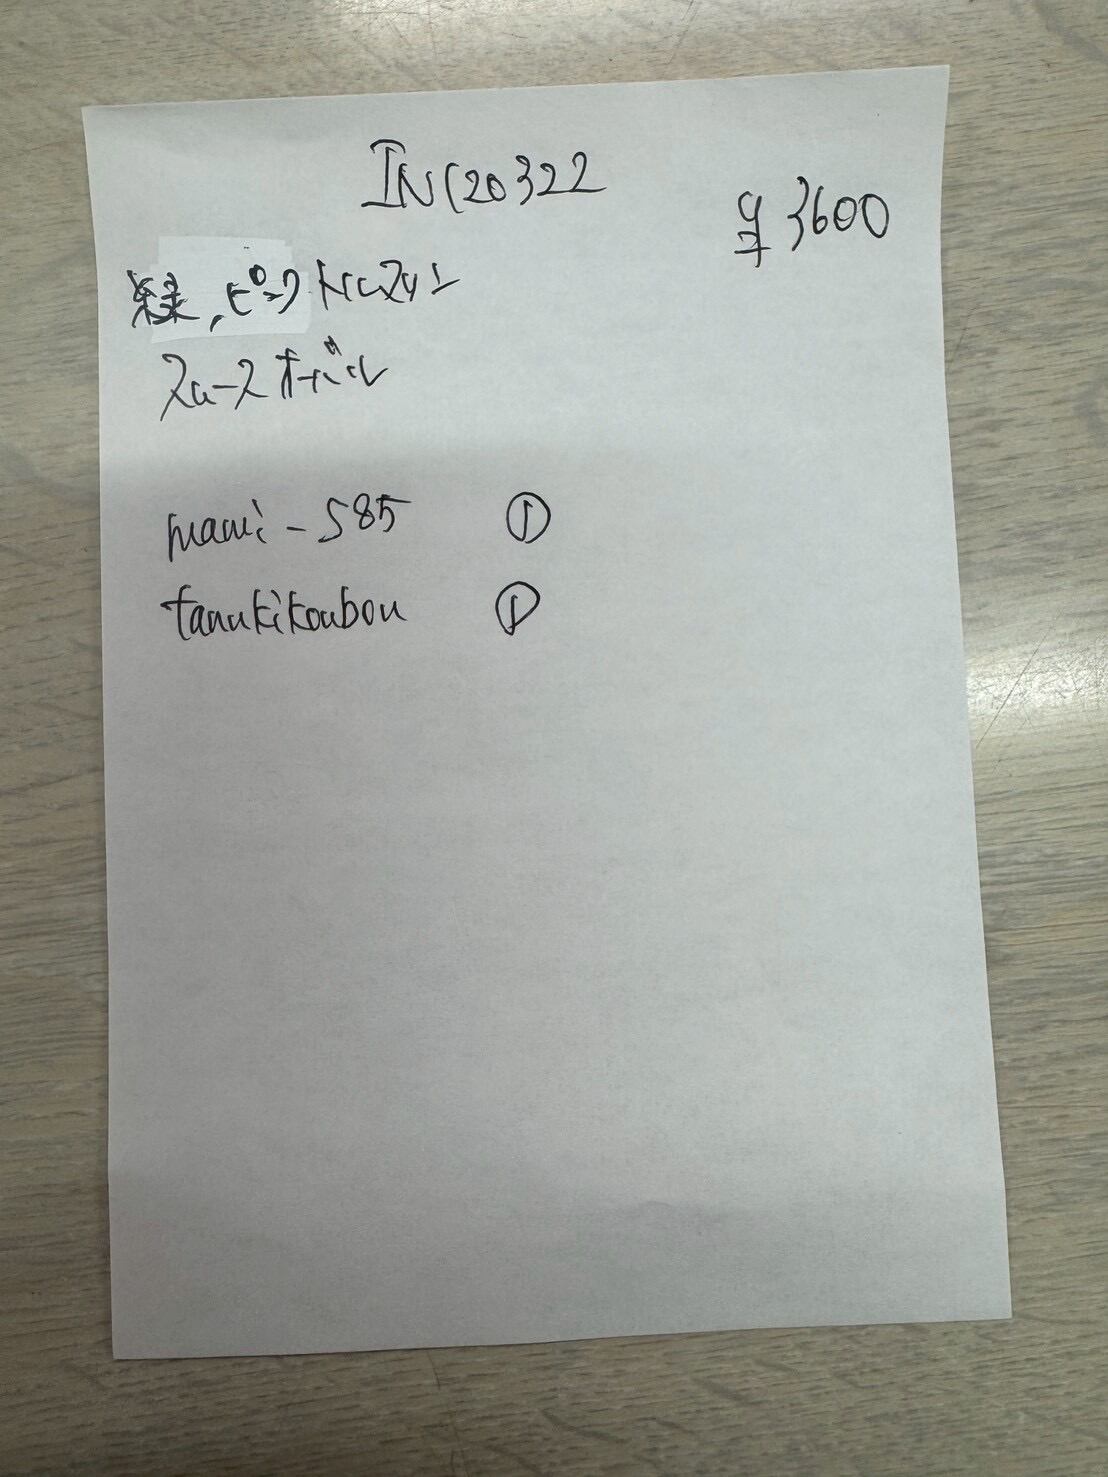 INC20322
¥3600
緑、ピンクトルマリン
ルース オーバル
mami-s85 ①
tanukikoubou ①